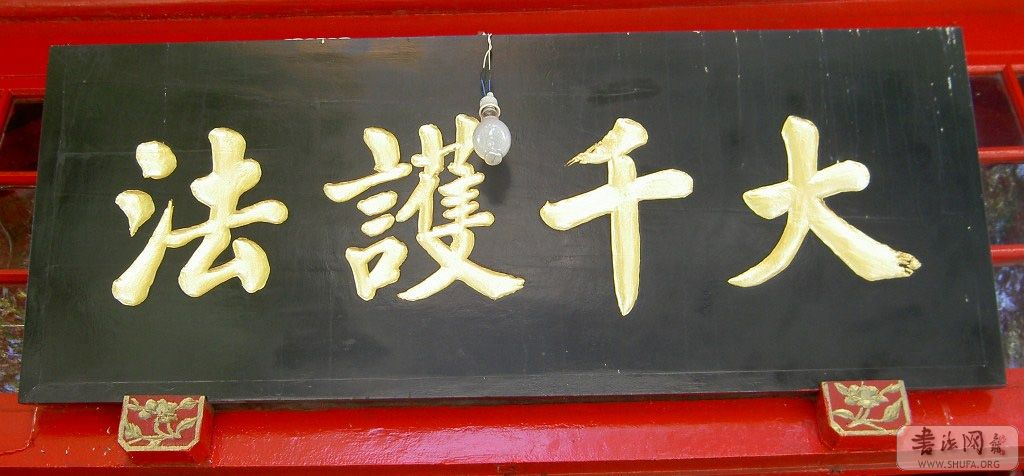 大千護法
书法网
WWW.SHUFA.ORG